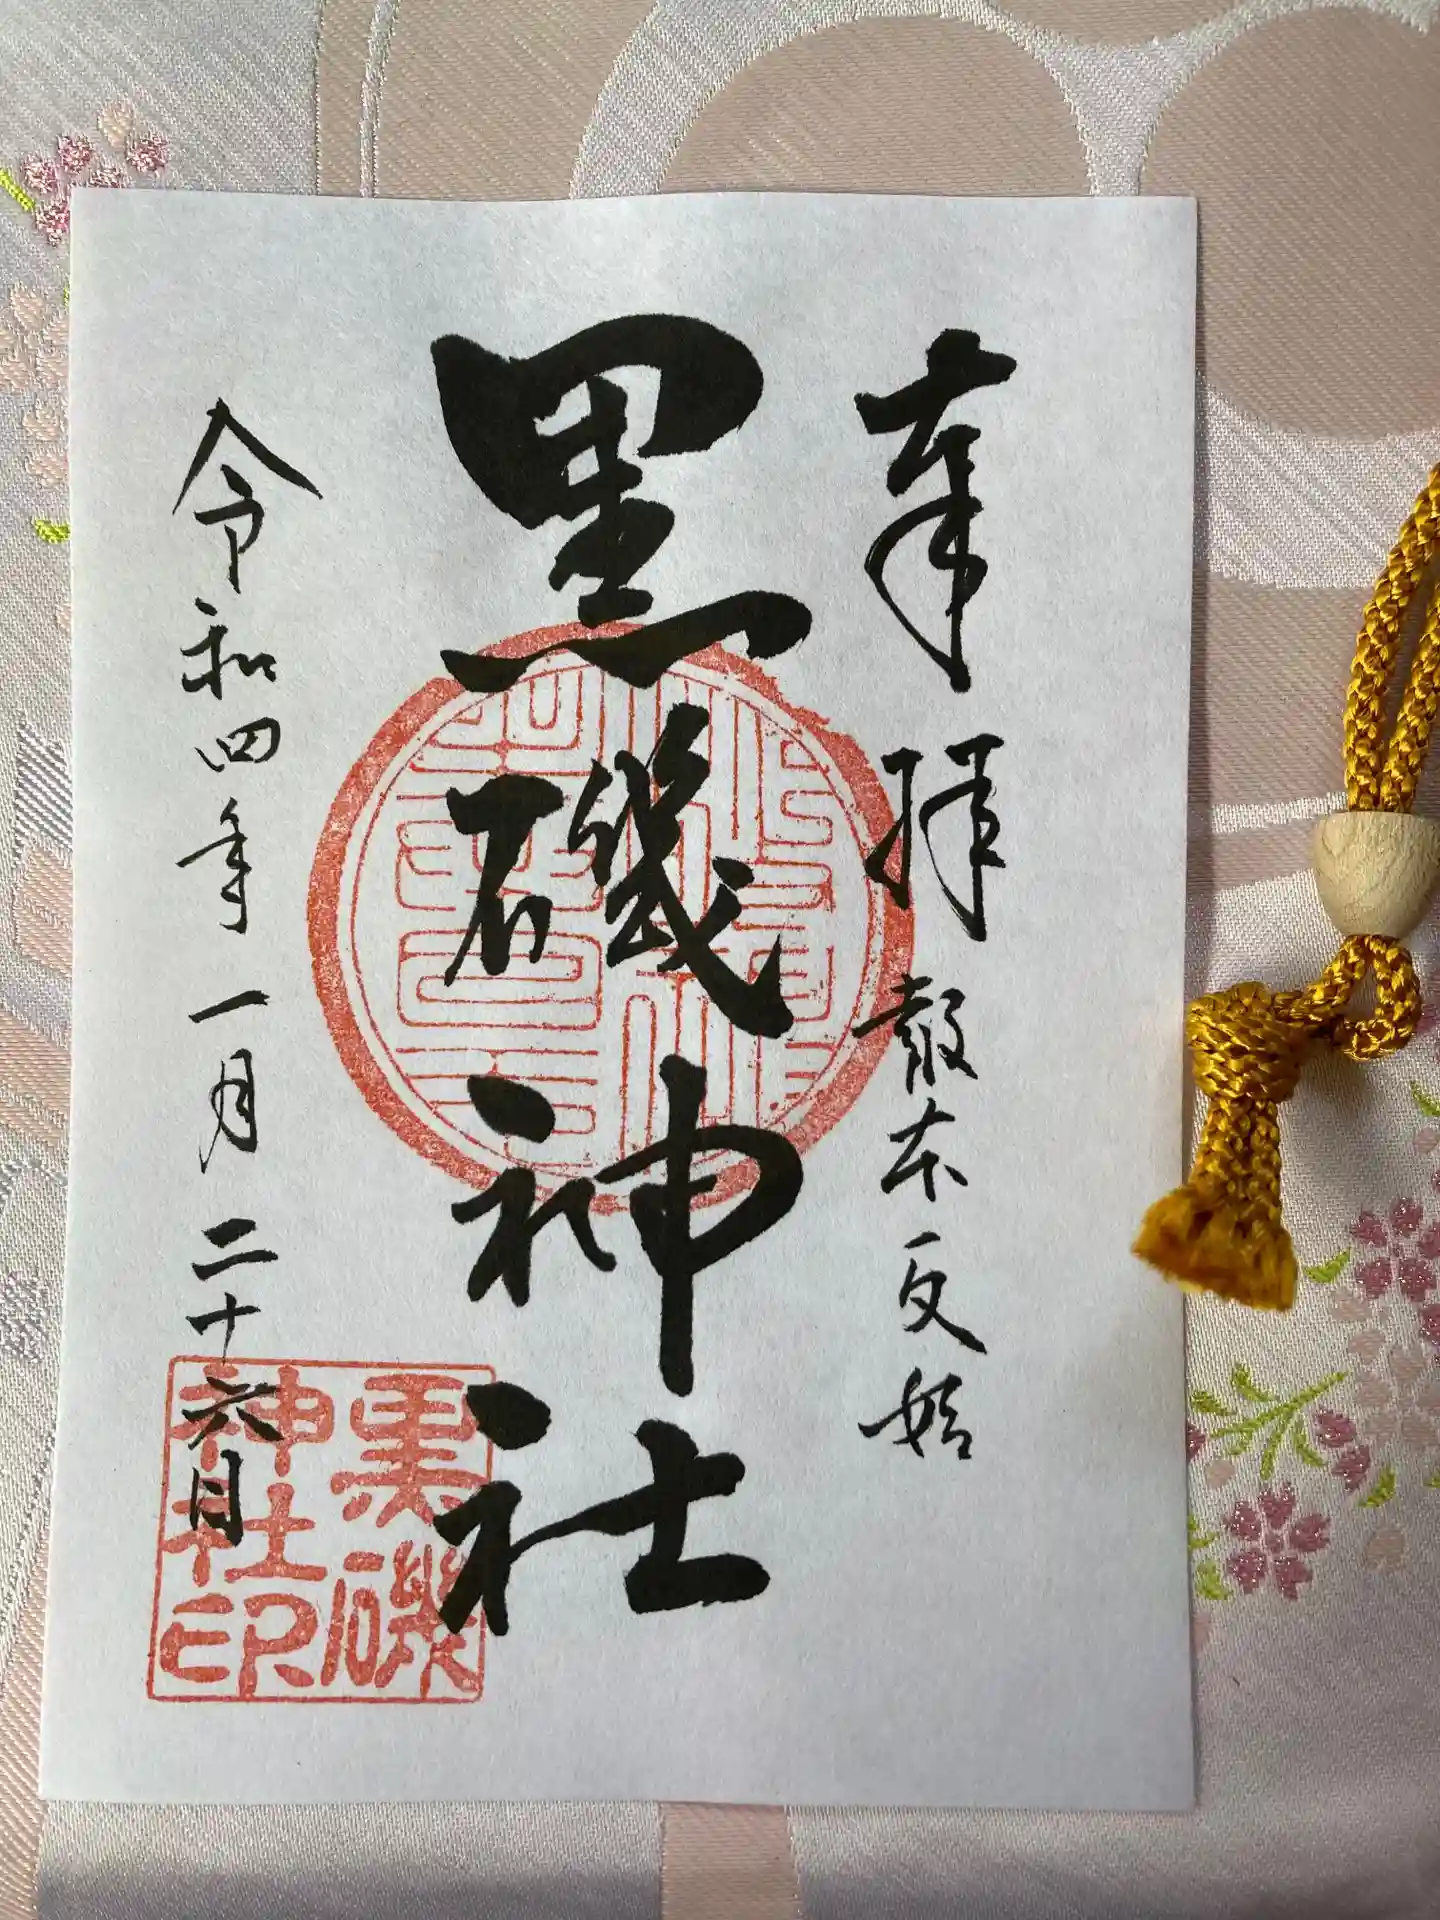 奉拝 報本反始
黒磯神社
令和四年一月二十六日
黒磯
神社印